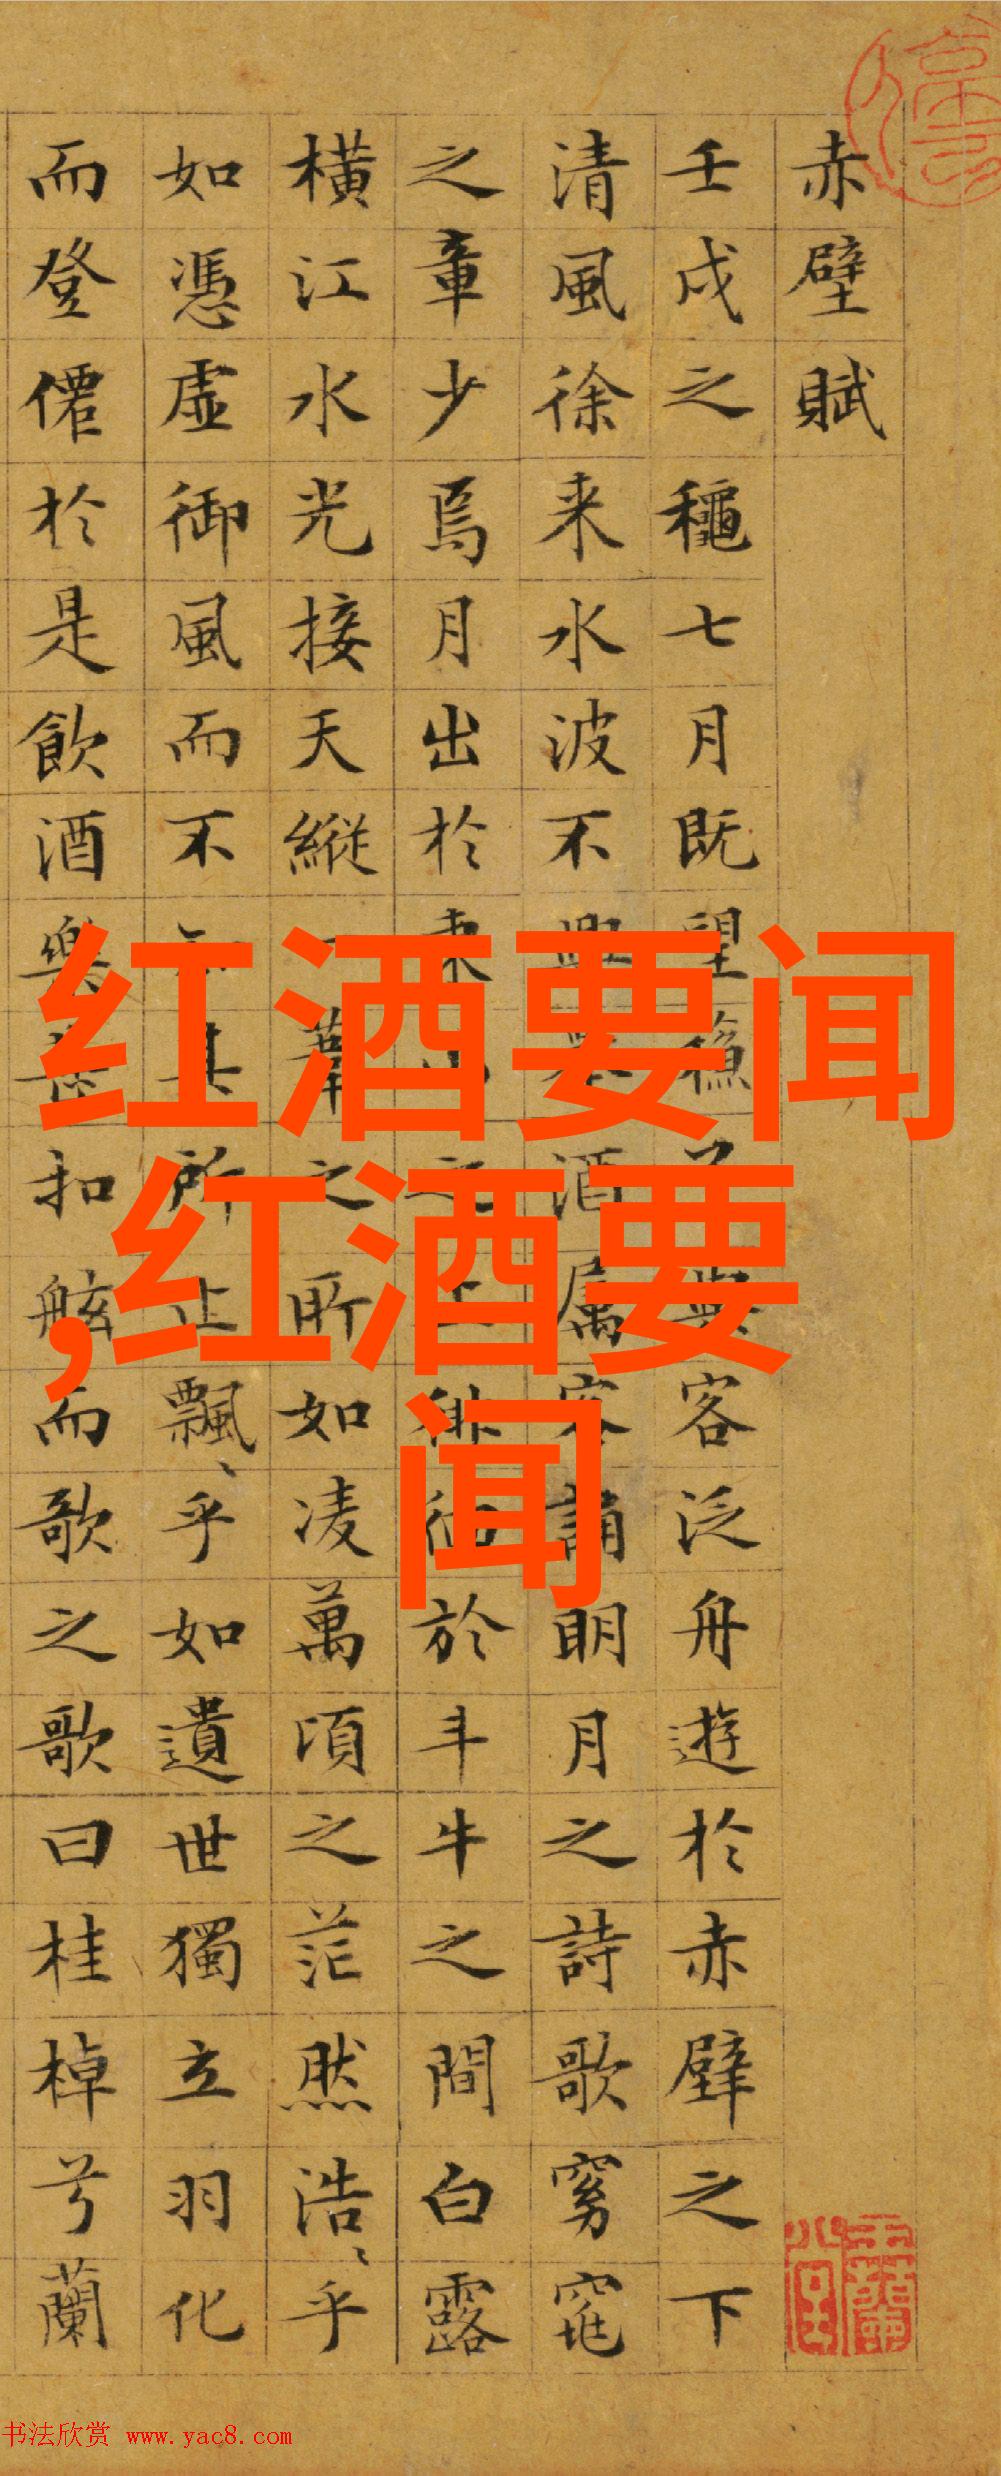 赤壁賦
壬戌之龝七月既望
客泛舟遊於赤壁之下
清風徐来水波不
酒属客誦明月之詩歌窈窕
之章少焉月出於東
於斗牛之間白露
横江水光接天縦
葦之所如凌萬頃之茫然浩〻乎
如憑虚御風而不
其所止飄〻乎如遺世獨立羽化
而登僊於是飲酒樂
扣舷而歌之歌曰桂棹兮蘭
红酒要闻
,红酒要
闻
书法欣赏 www.yac8.com